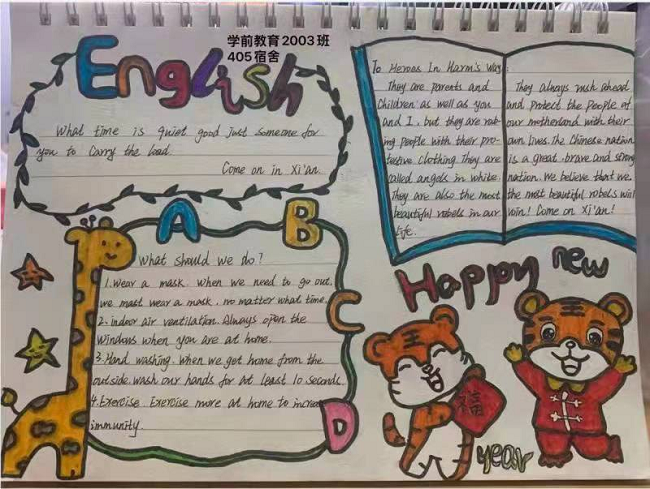 学前教育2003班
405宿舍
English
What time is quiet good Just someone for
you to Carry the load.
Come on in Xi'an.
To Heroes In Harm's Way:
They are parents and
Children as well as you
and I, but they are rob-
ing people with their pro-
tective clothing. They are
called angels in white.
They are also the most
beautiful robels in our
life.
They always rush ahead
and protect the people of
our motherland with their
own lives. The Chinese nation
is a great, brave and strong
nation. We believe that we
the most beautiful robels will
win! Come on Xi'an!
A B
C
D
What should we do?
1. Wear a mask. when we need to go out,
we mast wear a mask, no matter what time.
2. indoor air ventilation. Always open the
windows when you are at home.
3. Hand washing. When we get home from the
outside. wash our hands for at least 10 seconds.
4. Exercise. Exercise more at home to increase
immunity.
Happy new
福
year